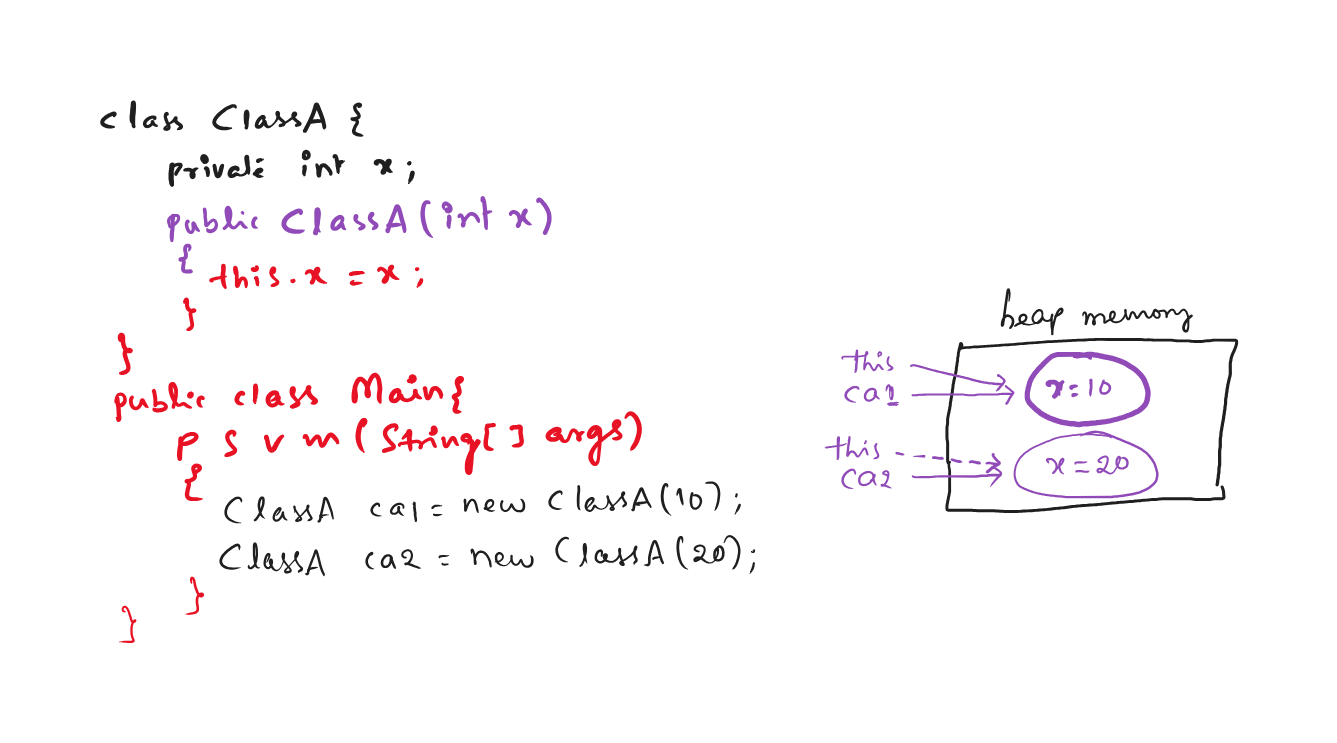 class ClassA {
private int x;
public ClassA(int x)
{
this.x = x;
}
}
public class Main{
p s v m (String[] args)
{
ClassA ca1 = new ClassA(10);
ClassA ca2 = new ClassA(20);
}
}
heap memory
this
ca1
x=10
this
ca2
x=20